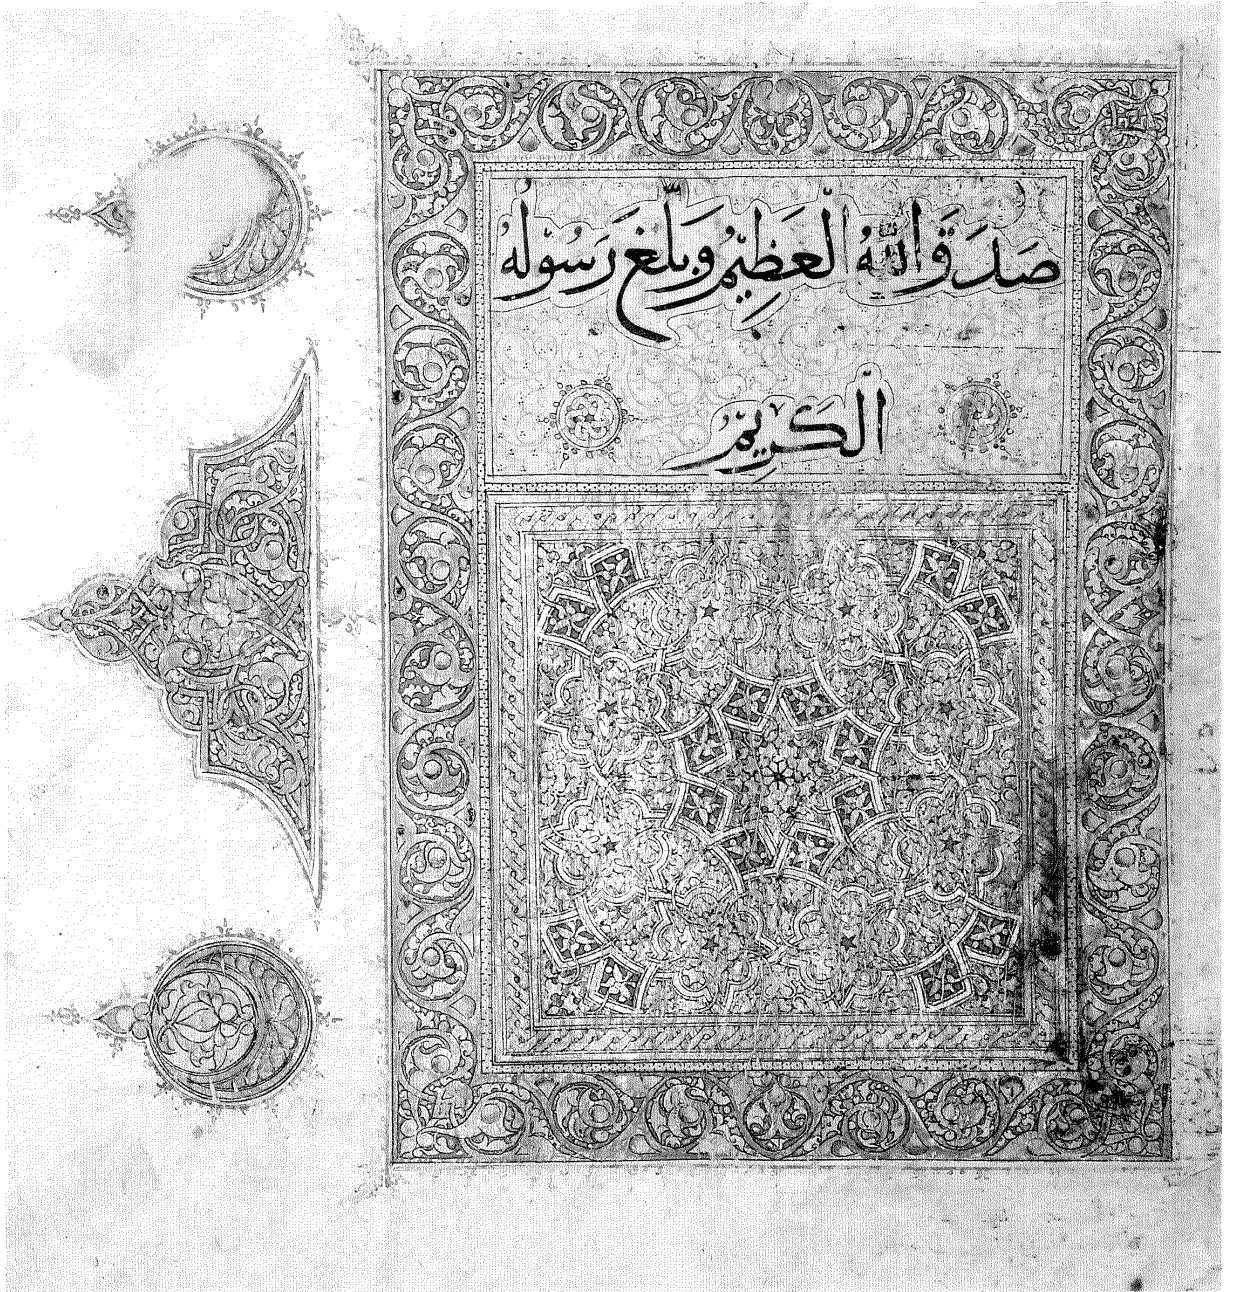 صَدَقَ اللّٰهُ الْعَظِيْمُ وَبَلَّغَ رَسُوْلُهُ
الْكَرِيْمُ